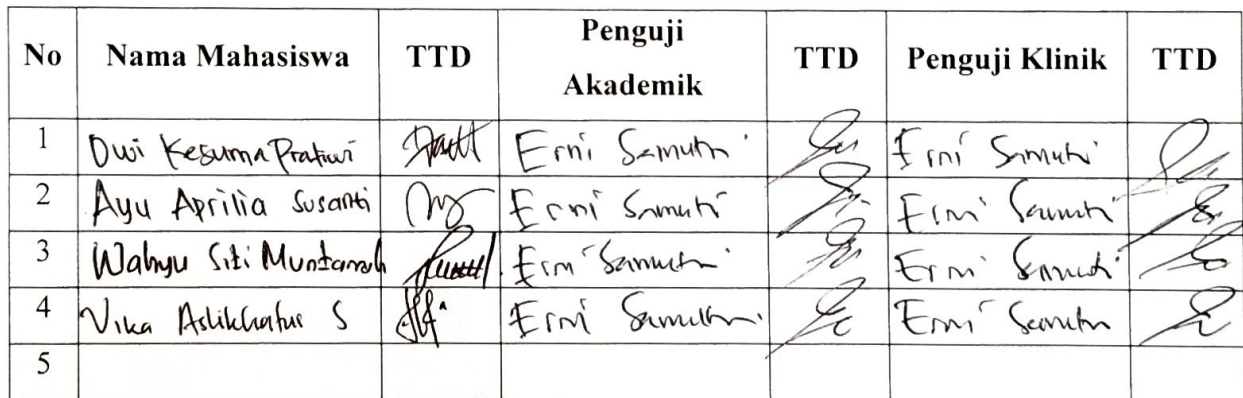 No Nama Mahasiswa TTD Penguji Akademik TTD Penguji Klinik TTD
1 Dwi Kesuma Pratiwi Erni Samutri Erni Samutri
2 Ayu Aprilia Susanti Erni Samutri Erni Samutri
3 Wahyu Siti Erni Samutri Erni Samutri
4 Vika Aslikhatur S Erni Samutri Erni Samutri
5